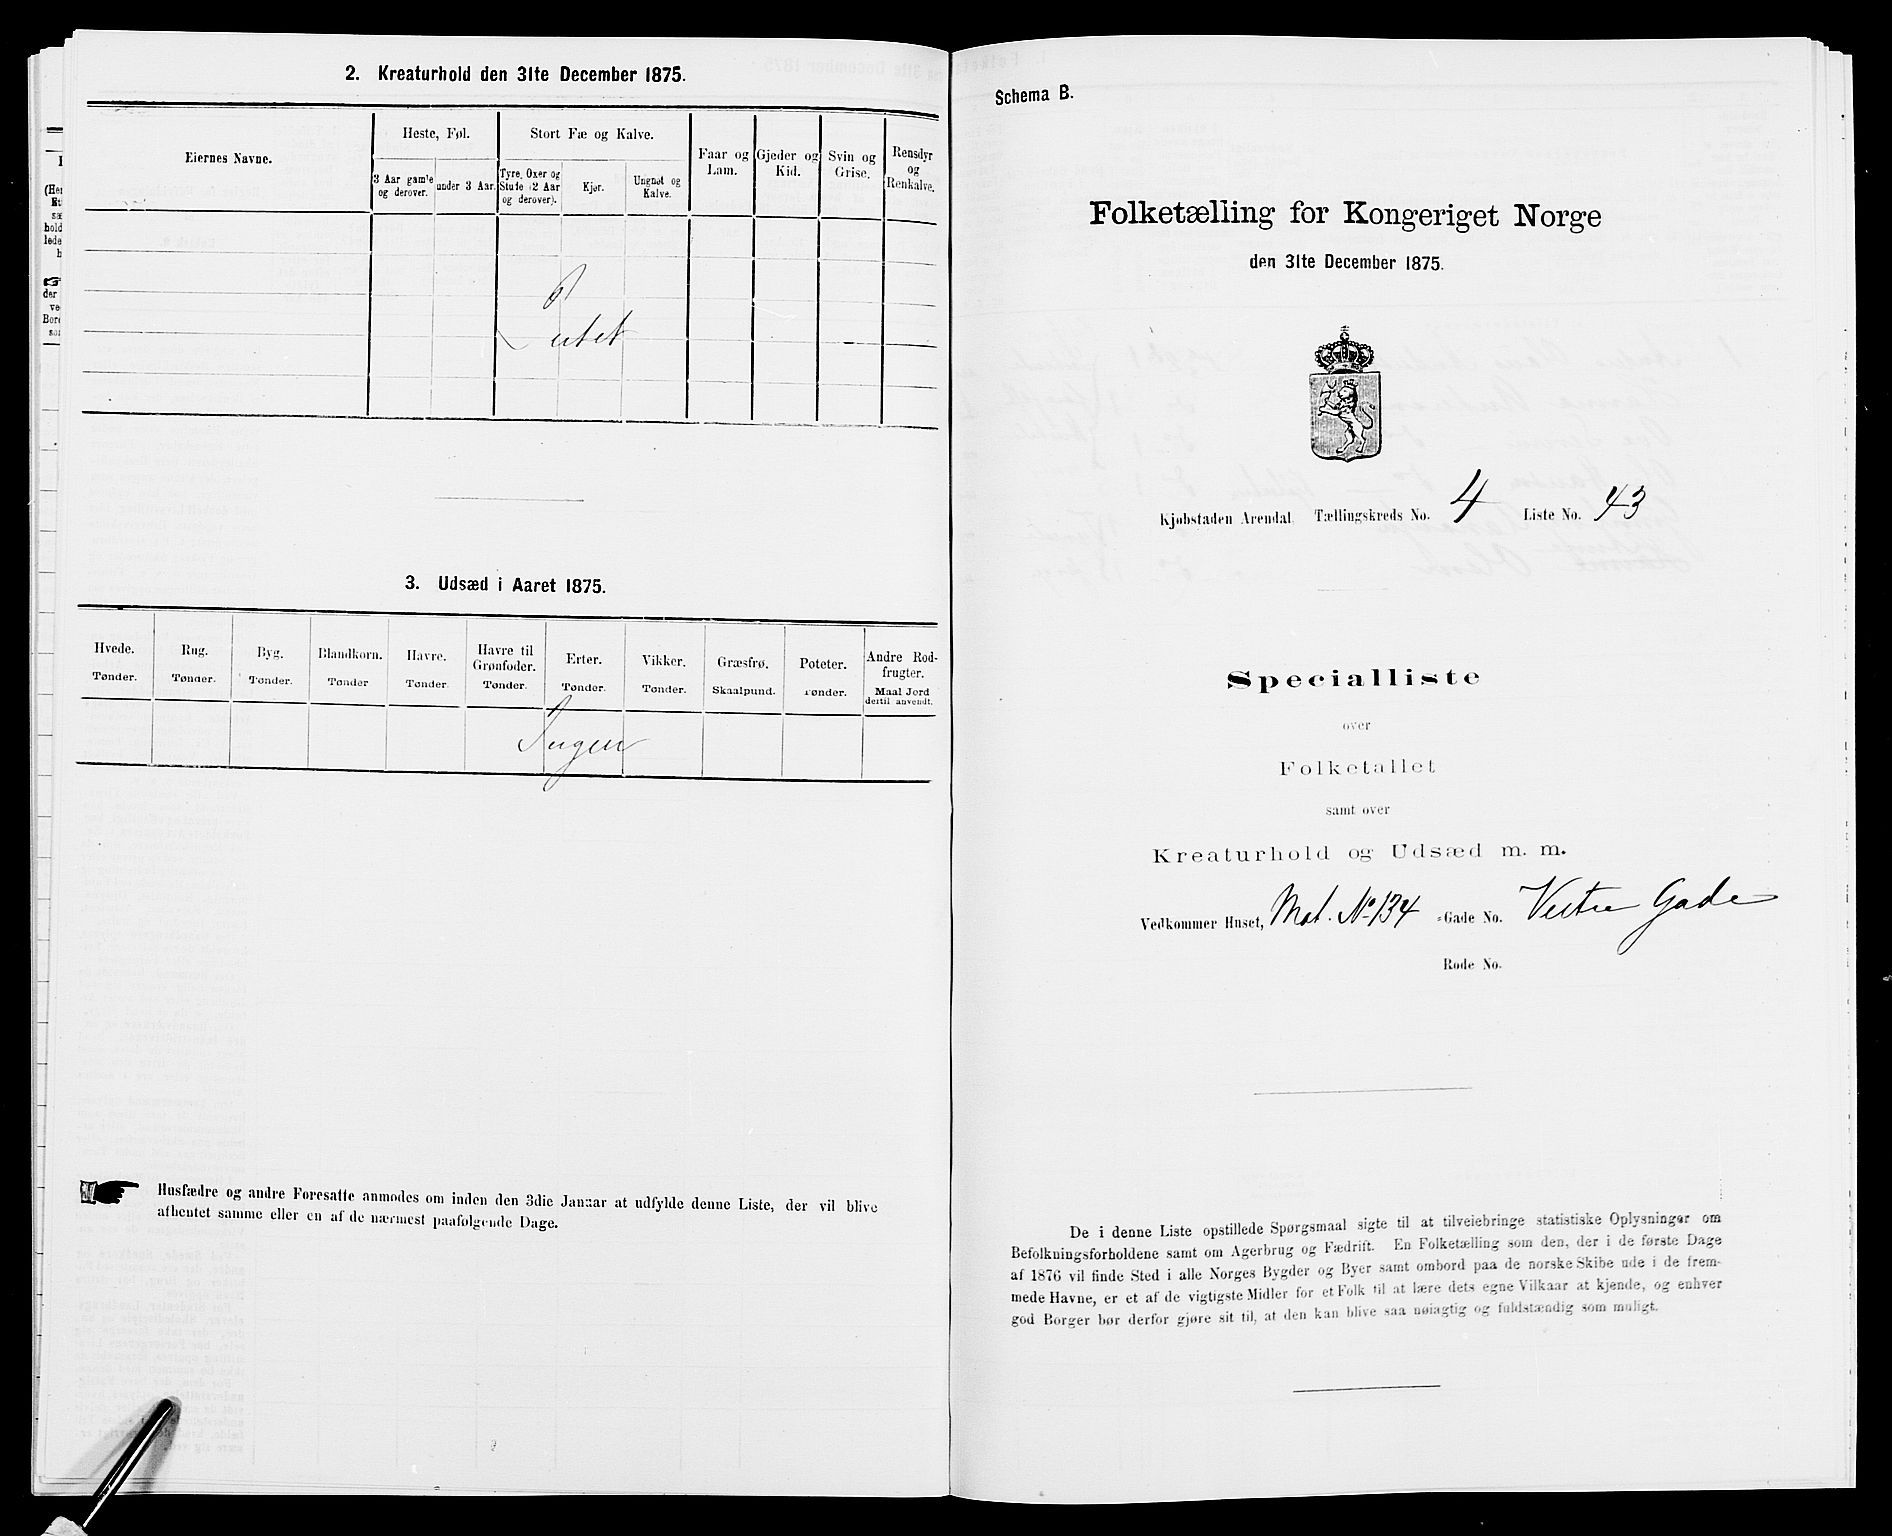 2. Kreaturhold den 31te December 1875.
Eiernes Navne.
Heste, Føl.
Stort Fæ og Kalve.
Faar og
Lam.
Gjeder og
Kid.
Svin og
Grise.
Rensdyr
og
Renkalve.
3 Aar gamle
og derover.
under 3 Aar.
Tyre, Oxer og
Stude (2 Aar
og derover).
Kjør.
Ungnøt og
Kalve.
3. Udsæd i Aaret 1875.
Hvede.
Tønder.
Rug.
Tønder.
Byg.
Tønder.
Blandkorn.
Tønder
Havre.
Tønder.
Havre til
Grønfoder.
Tønder.
Erter.
Tønder.
Vikker.
Tønder.
Græsfrø.
Skaalpund.
Poteter.
Tønder.
Andre Rod-
frugter.
Maal Jord
dertil anvendt.
Ingen
Husfædre og andre Foresatte anmodes om inden den 3die Januar at udfylde denne Liste, der vil blive
afhentet samme eller en af de nærmest paafølgende Dage.
Schema B.
Folketælling for Kongeriget Norge
den 31te December 1875.
Kjøbstaden Arendal. Tællingskreds No. 4 Liste No. 43
Specialliste
over
Folketallet
samt over
Kreaturhold og Udsæd m. m.
Vedkommer Huset, Mat. No 134 -Gade No. Vestre Gade
Rode No.
De i denne Liste opstillede Spørgsmaal sigte til at tilveiebringe statistiske Oplysninger om
Befolkningsforholdene samt om Agerbrug og Fædrift. En Folketælling som den, der i de første Dage
af 1876 vil finde Sted i alle Norges Bygder og Byer samt ombord paa de norske Skibe ude i de frem-
mede Havne, er et af de vigtigste Midler for et Folk til at lære dets egne Vilkaar at kjende, og enhver
god Borger bør derfor gjøre sit til, at den kan blive saa nøiagtig og fuldstændig som muligt.